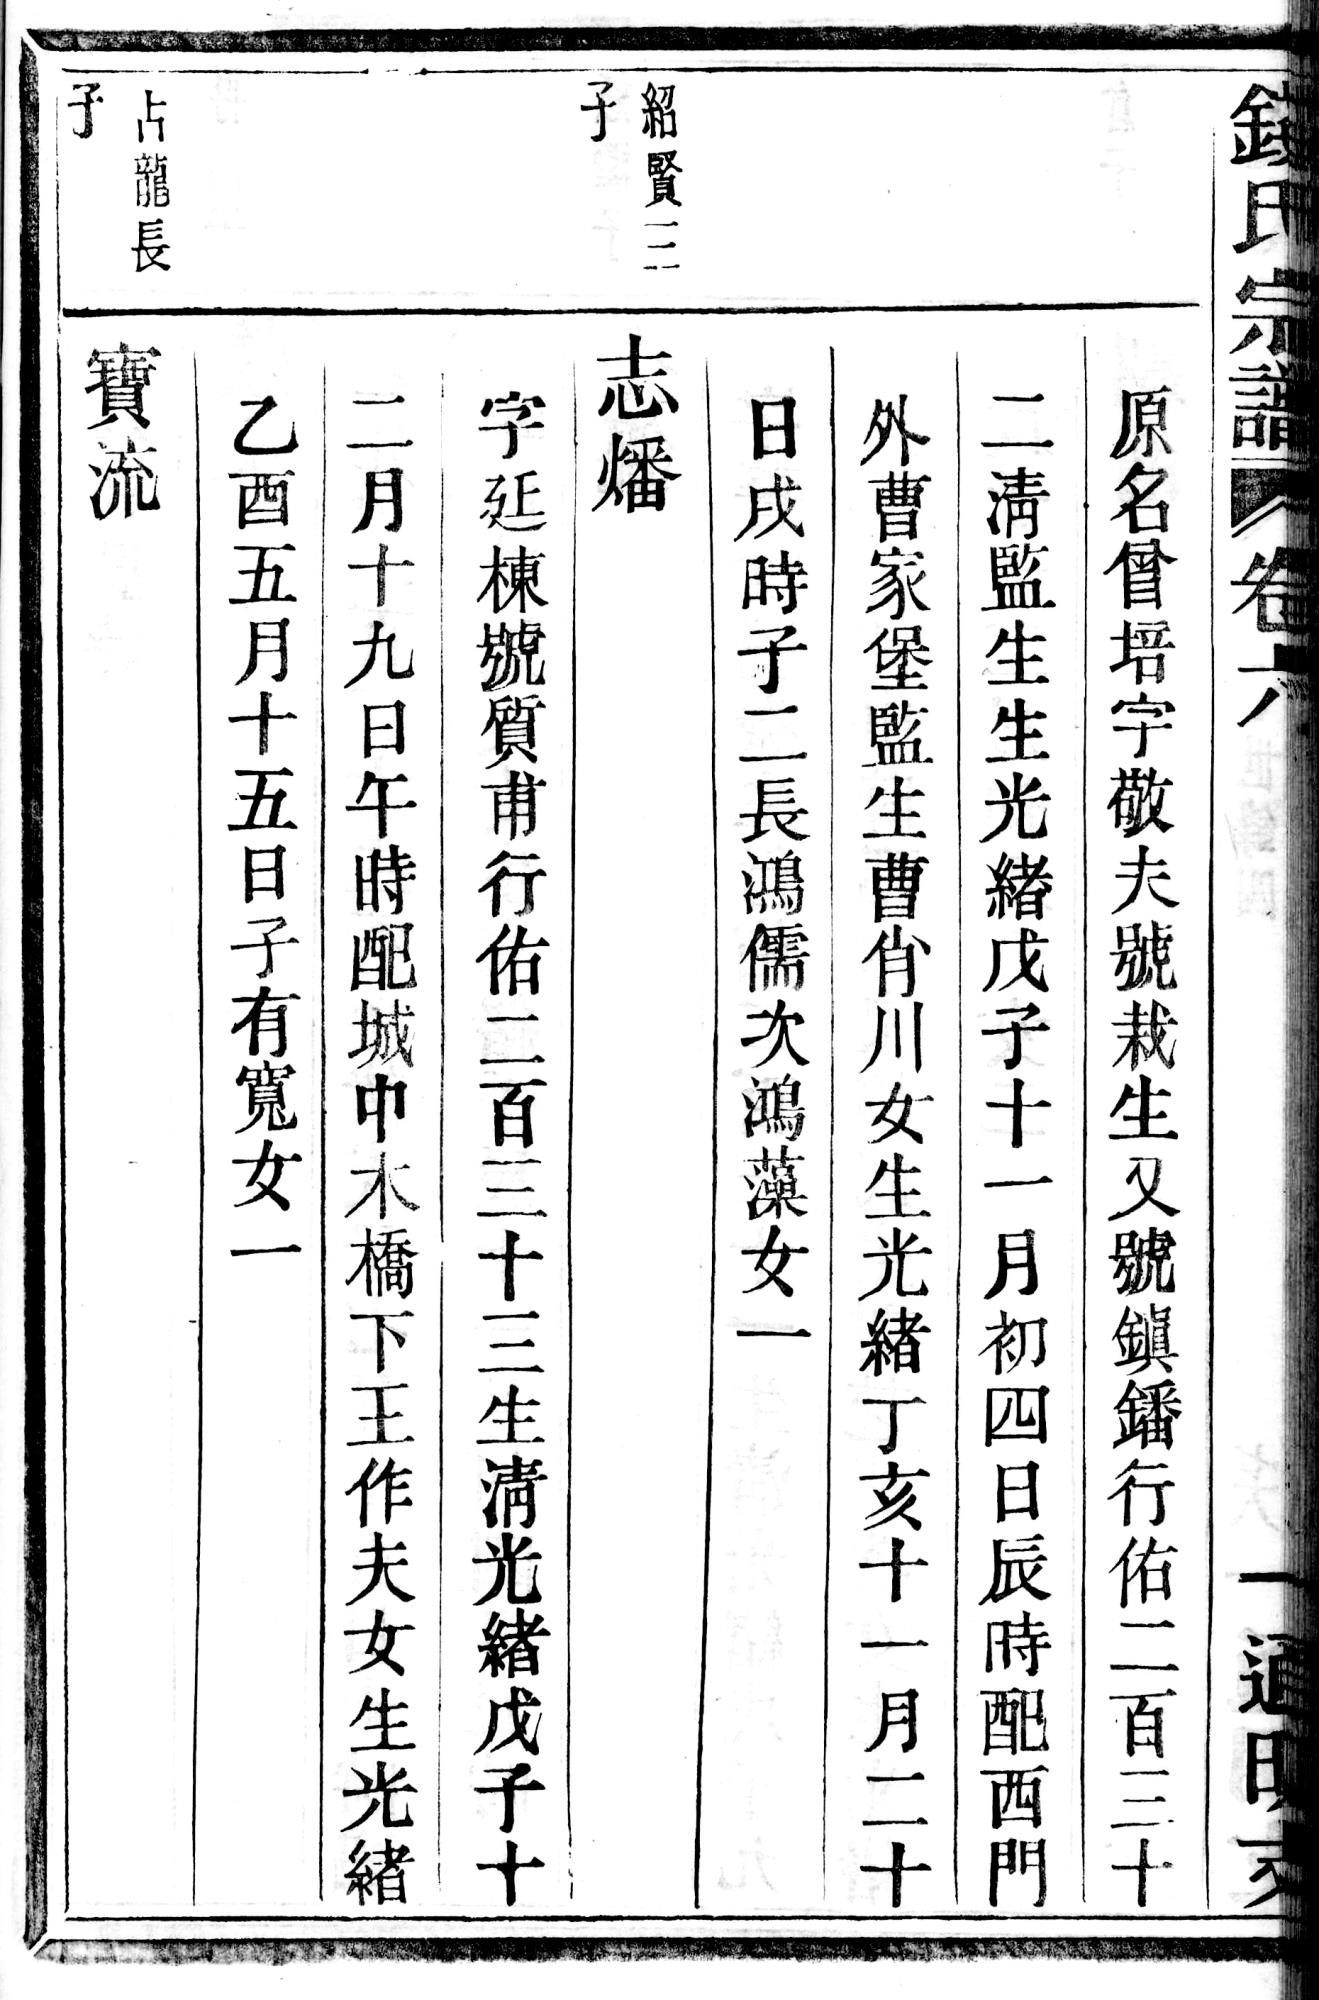 錢氏宗譜 卷六 一 通明支
原名曾培字敬夫號栽生又號鎭鐇行佑二百三十
二淸監生生光緖戊子十一月初四日辰時配西門
外曹家堡監生曹肖川女生光緖丁亥十一月二十
日戌時子二長鴻儒次鴻藻女一
紹賢二
子
志燔
字延棟號質甫行佑二百三十三生淸光緖戊子十
二月十九日午時配城中木橋下王作夫女生光緖
乙酉五月十五日子有寬女一
占龍長
子
寶流